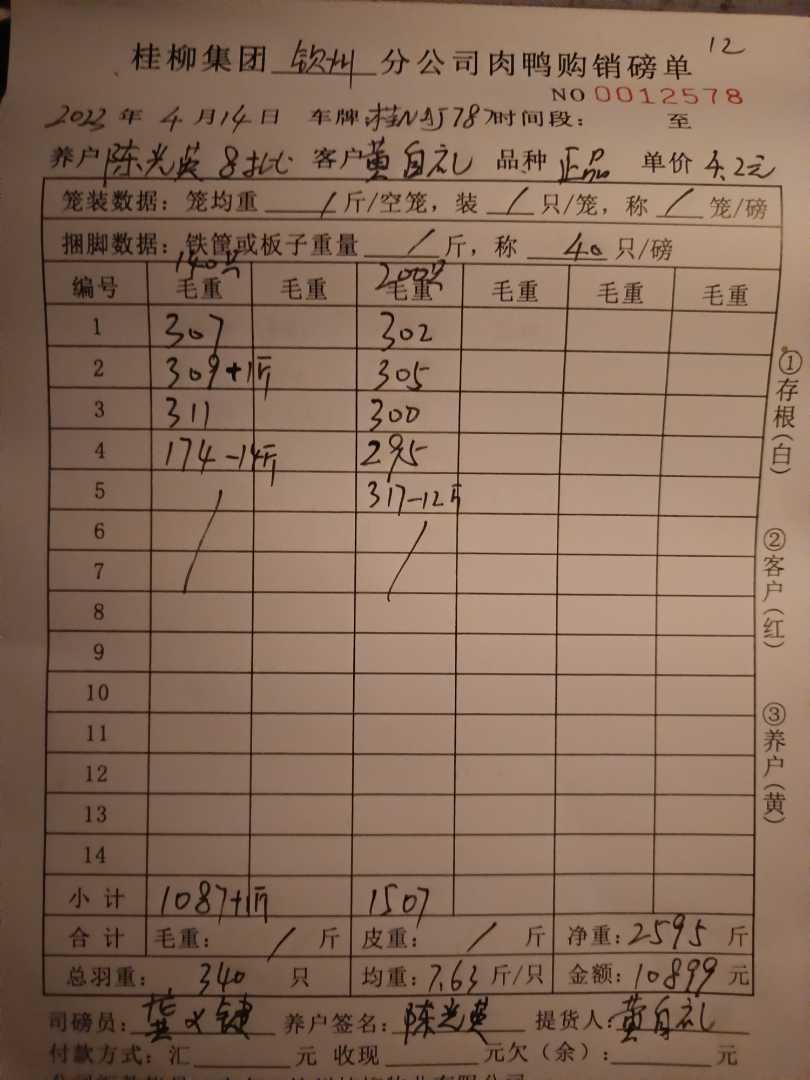 12
桂柳集团 钦州 分公司肉鸭购销磅单
NO 0012578
2023 年 4 月 14 日 车牌 时间段: 至
养户 陈光英 8批 客户 黄自礼 品种 正品 单价 4.2元
笼装数据: 笼均重 / 斤/空笼, 装 / 只/笼, 称 / 笼/磅
捆脚数据: 铁筐或板子重量 / 斤, 称 40 只/磅
140只 200只
编号 毛重 毛重 毛重 毛重 毛重 毛重
1 307 302
2 309+1斤 305
3 311 300
4 174-14斤 295
5 / 317-12斤
6 /
7
8
9
10
11
12
13
14
小计 1087+1斤 1507
合计 毛重: / 斤 皮重: / 斤 净重: 2595 斤
总羽重: 340 只 均重: 7.63 斤/只 金额: 10899 元
司磅员: 养户签名: 陈光英 提货人: 黄自礼
付款方式: 汇 元 收现 元欠(余): 元
①存根(白)
②客户(红)
③养户(黄)